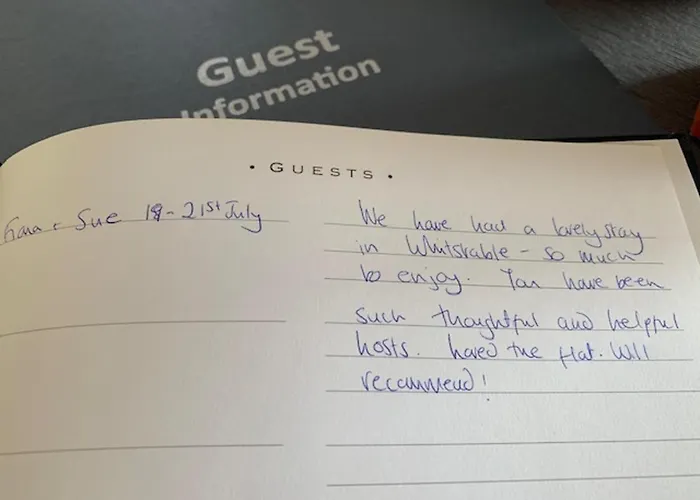 Guest
Information
• GUESTS •
+ Sue 18-21st July
We have had a lovely stay
in Whitstable - so much
to enjoy. You have been
such thoughtful and helpful
hosts. Loved the flat. Will
recommend!